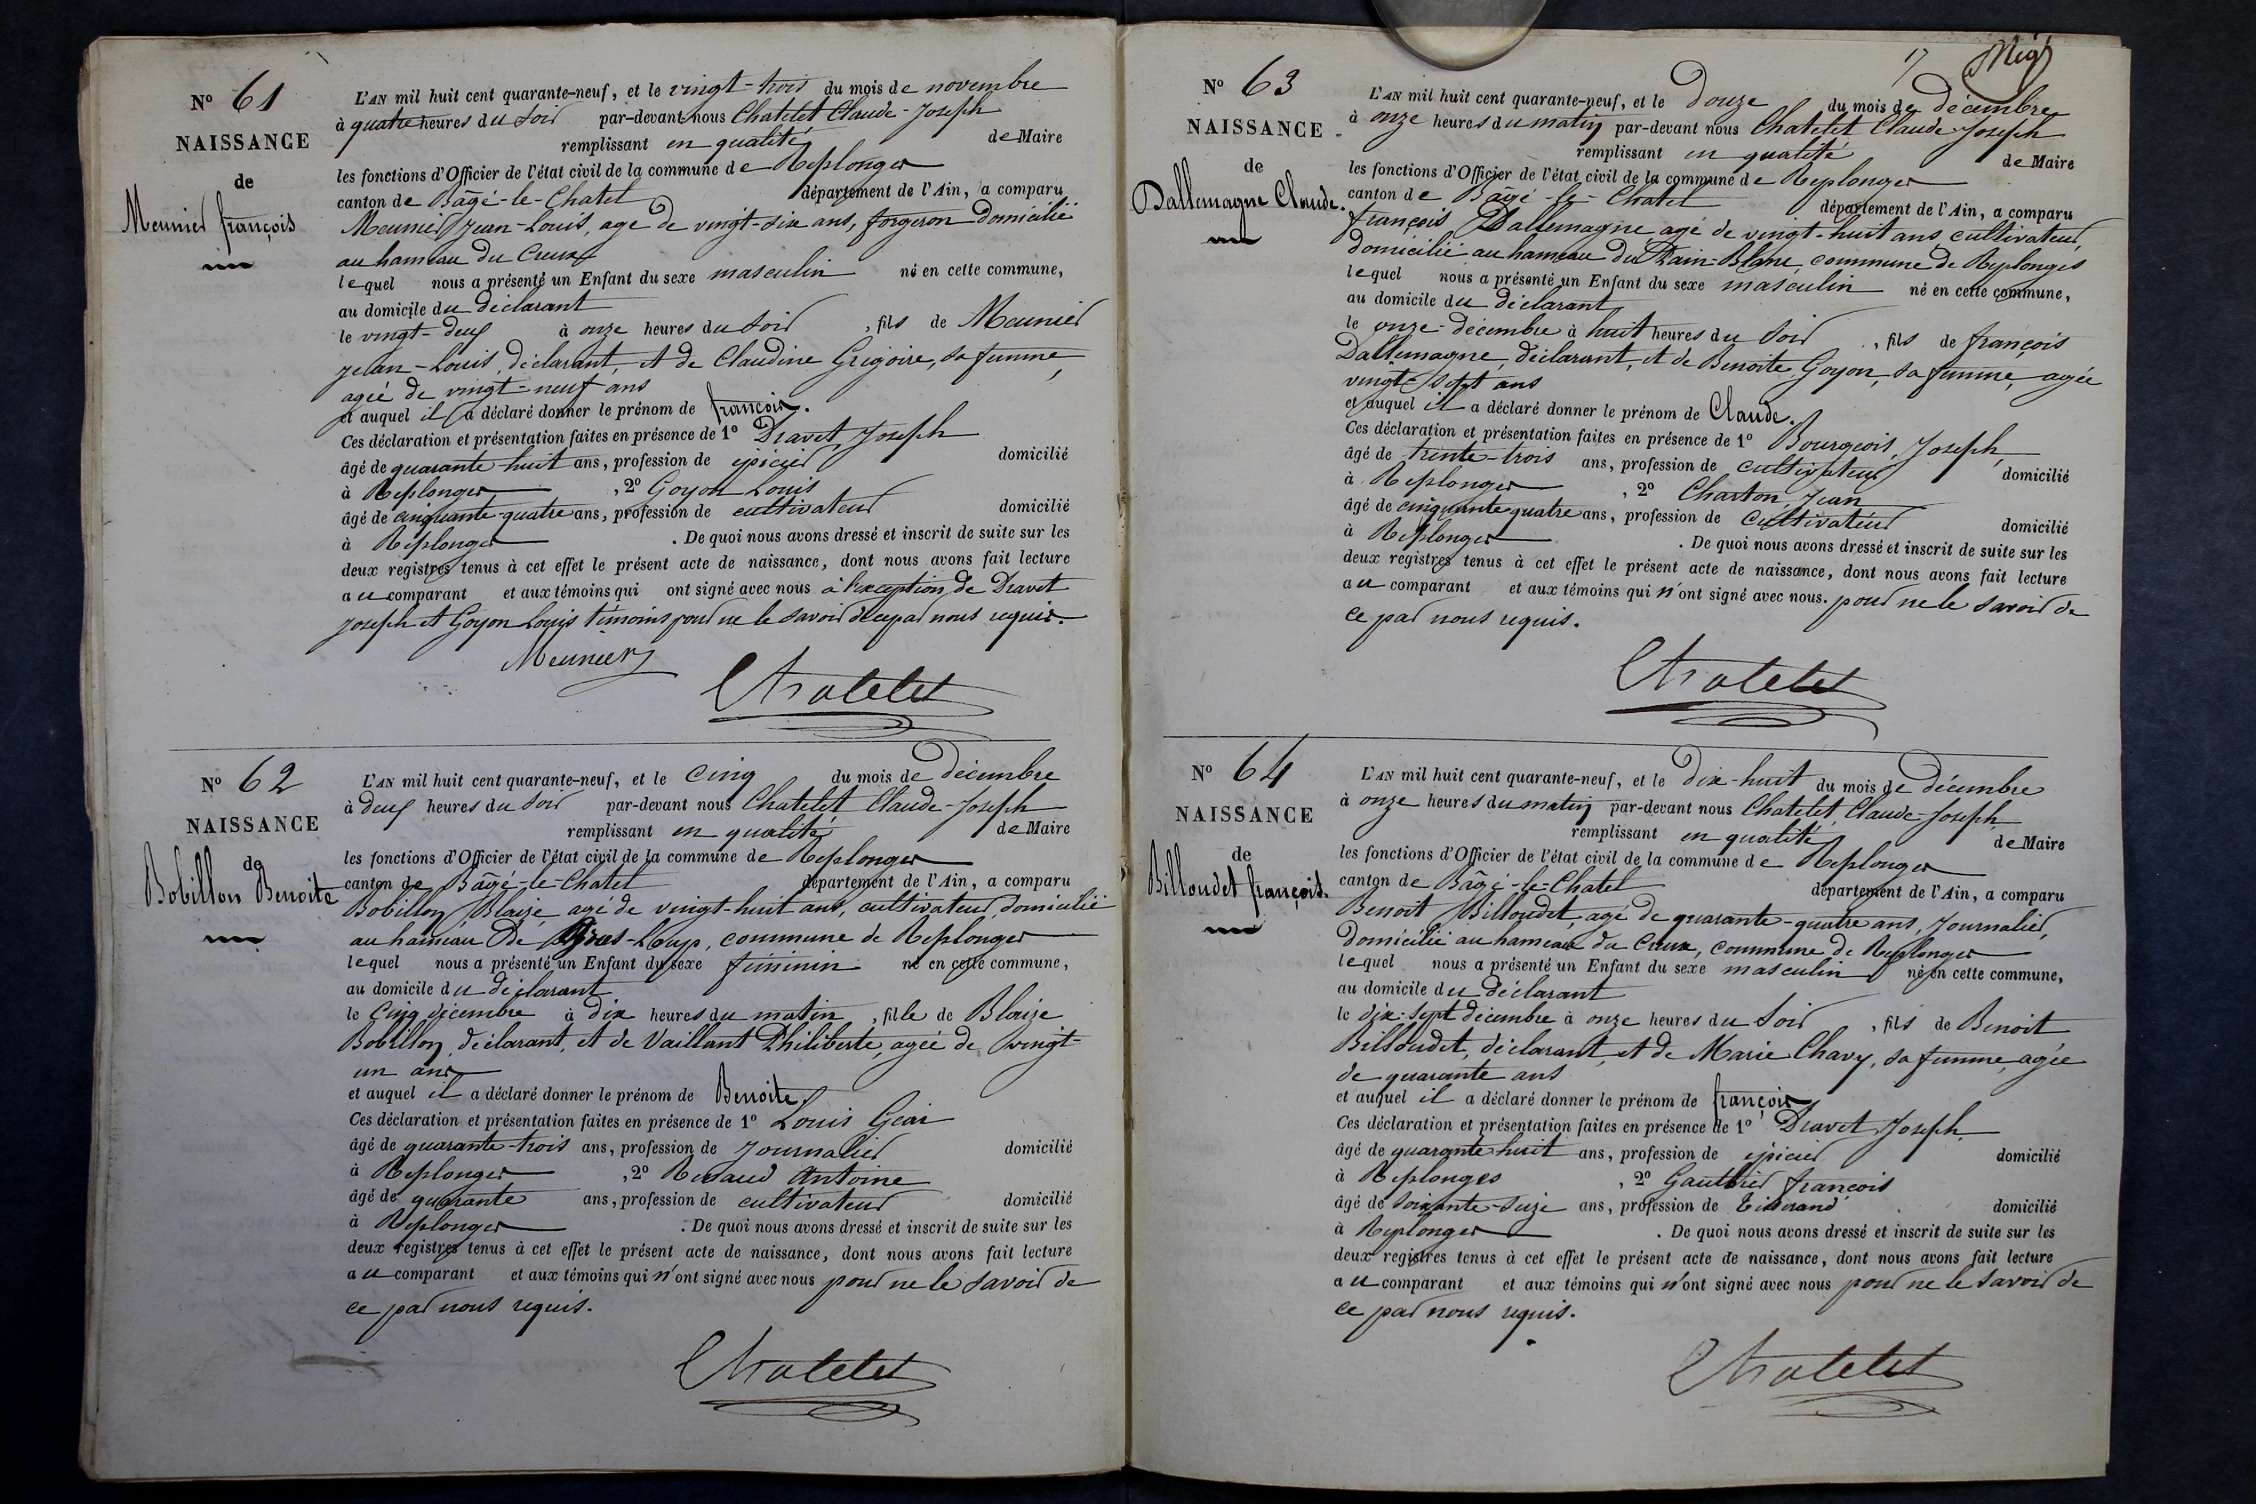 N° 61
NAISSANCE
de
Meunier françois
L'AN mil huit cent quarante-neuf, et le vingt-trois du mois de novembre
à quatre heures du soir par-devant nous Chatelet Claude-Joseph
remplissant en qualité de Maire
les fonctions d'Officier de l'état civil de la commune de Replonges
canton de Bâgé-le-Chatel département de l'Ain, a comparu
Meunier Jean-Louis, age de vingt-six ans, forgeron domicilié
au hameau du Creux
lequel nous a présenté un Enfant du sexe masculin né en cette commune,
au domicile du déclarant
le vingt-deux à onze heures du soir, fils de Meunier
Jean-Louis, déclarant, et de Claudine Grégoire, sa femme,
agée de vingt-neuf ans
et auquel il a déclaré donner le prénom de françois.
Ces déclaration et présentation faites en présence de 1° Dravet, Joseph
âgé de quarante-huit ans, profession de épicier domicilié
à Replonges, 2° Goyon Louis
âgé de cinquante-quatre ans, profession de cultivateur domicilié
à Replonges. De quoi nous avons dressé et inscrit de suite sur les
deux registres tenus à cet effet le présent acte de naissance, dont nous avons fait lecture
au comparant et aux témoins qui ont signé avec nous à l'exception de Dravet
Joseph et Goyon Louis témoins pour ne le savoir de ce par nous requis.
Meunier
Chatelet
N° 62
NAISSANCE
de
Bobillon Benoite
L'AN mil huit cent quarante-neuf, et le cinq du mois de décembre
à deux heures du soir par-devant nous Chatelet Claude-Joseph
remplissant en qualité de Maire
les fonctions d'Officier de l'état civil de la commune de Replonges
canton de Bâgé-le-Chatel département de l'Ain, a comparu
Bobillon Blaize agé de vingt-huit ans, cultivateur domicilié
au hameau de -Loup, commune de Replonges
lequel nous a présenté un Enfant du sexe féminin né en cette commune,
au domicile du déclarant
le cinq décembre à dix heures du matin, fille de Blaize
Bobillon, déclarant, et de Vaillant Philiberte, agée de vingt-
un ans
et auquel il a déclaré donner le prénom de Benoite.
Ces déclaration et présentation faites en présence de 1° Louis
âgé de quarante-trois ans, profession de Journalier domicilié
à Replonges, 2° Antoine
âgé de quarante ans, profession de cultivateur domicilié
à Replonges. De quoi nous avons dressé et inscrit de suite sur les
deux registres tenus à cet effet le présent acte de naissance, dont nous avons fait lecture
au comparant et aux témoins qui n'ont signé avec nous pour ne le savoir de
ce par nous requis.
Chatelet
17
N° 63
NAISSANCE
de
Dallemagne Claude.
L'AN mil huit cent quarante-neuf, et le Douze du mois de décembre
à onze heures du matin par-devant nous Chatelet Claude-Joseph
remplissant en qualité de Maire
les fonctions d'Officier de l'état civil de la commune de Replonges
canton de Bâgé-le-Chatel département de l'Ain, a comparu
françois Dallemagne agé de vingt-huit ans cultivateur,
domicilié au hameau du Pain-Blanc, commune de Replonges
lequel nous a présenté un Enfant du sexe masculin né en cette commune,
au domicile du déclarant
le onze-décembre à huit heures du soir, fils de françois
Dallemagne, déclarant, et de Benoite Goyon, sa femme, agée
vingt-sept ans
et auquel il a déclaré donner le prénom de Claude.
Ces déclaration et présentation faites en présence de 1° Bourgeois, Joseph,
âgé de trente-trois ans, profession de cultivateur domicilié
à Replonges, 2° Charton, Jean
âgé de cinquante quatre ans, profession de Cultivateur domicilié
à Replonges. De quoi nous avons dressé et inscrit de suite sur les
deux registres tenus à cet effet le présent acte de naissance, dont nous avons fait lecture
au comparant et aux témoins qui n'ont signé avec nous. pour ne le savoir de
ce par nous requis.
Chatelet
N° 64
NAISSANCE
de
Billoudet françois.
L'AN mil huit cent quarante-neuf, et le dix-huit du mois de décembre
à onze heures du matin par-devant nous Chatelet, Claude-Joseph
remplissant en qualité de Maire
les fonctions d'Officier de l'état civil de la commune de Replonges
canton de Bâgé-le-Chatel département de l'Ain, a comparu
Benoit Billoudet, agé de quarante-quatre ans, Journalier,
domicilié au hameau du Creux, commune de Replonges
lequel nous a présenté un Enfant du sexe masculin né en cette commune,
au domicile du déclarant
le dix-sept décembre à onze heures du soir, fils de Benoit
Billoudet, déclarant, et de Marie Chavy, sa femme, agée
de quarante ans
et auquel il a déclaré donner le prénom de françois
Ces déclaration et présentation faites en présence de 1° Dravet Joseph
âgé de quarante huit ans, profession de épicier domicilié
à Replonges, 2° Gauthier françois
âgé de soixante-seize ans, profession de tisserand domicilié
à Replonges. De quoi nous avons dressé et inscrit de suite sur les
deux registres tenus à cet effet le présent acte de naissance, dont nous avons fait lecture
au comparant et aux témoins qui n'ont signé avec nous pour ne le savoir de
ce par nous requis.
Chatelet